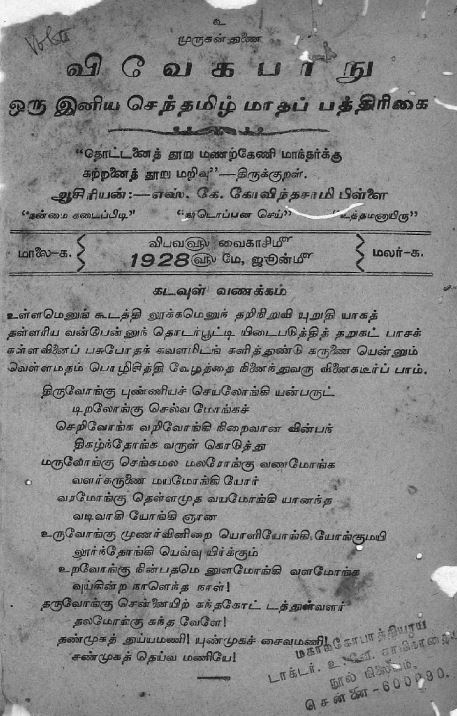 உ
முருகன் துணை
விவேகபாநு
ஒரு இனிய செந்தமிழ் மாதப் பத்திரிகை
"தொட்டனைத் தூறு மணற்கேணி மாந்தர்க்கு
கற்றனைத் தூறு மறிவு"—திருக்குறள்.
ஆசிரியன்:—எஸ். கே. கோவிந்தசாமி பிள்ளை
"நன்மை கடைப்பிடி" "ஒப்பன செய்" "உத்தமனாயிரு"
மாலை-க.
விபவ௵ வைகாசி௴
1928௵ மே, ஜூன்௴
மலர்-க.
கடவுள் வணக்கம்
உள்ளமெனுங் கூடத்தி லூக்கமெனுந் தறிநிறுவி யுறுதி யாகத்
தள்ளரிய வன்பென்னுந் தொடர்பூட்டி யிடைபடுத்தித் தறுகட் பாசக்
கள்ளவினைப் பசுபோதக் கவளமிடக் களித்துண்டு கருணை யென்னும்
வெள்ளமதம் பொழிசித்தி வேழத்தை நினைந்துவரு வினைகடீர்ப் பாம்.
திருவோங்கு புண்ணியச் செயலோங்கி யன்பருட்
டிறலோங்கு செல்வ மோங்கச்
செறிவோங்க வறிவோங்கி நிறைவான வின்பந்
திகழ்ந்தோங்க வருள் கொடுத்து
மருவோங்கு செங்கமல மலரோங்கு வணமோங்க
வளர்கருணை மயமோங்கி யோர்
வரமோங்கு தெள்ளமுத வயமோங்கி யானந்த
வடிவாகி யோங்கி ஞான
உருவோங்கு முணர்வினிறை யொளியோங்கி,யோங்குமயி
லூர்ந்தோங்கி யெவ்வு யிர்க்கும்
உறவோங்கு நின்பதமெ னுளமோங்கி வளமோங்க
வுய்கின்ற நாளெந்த நாள்!
தருவோங்கு சென்னையிற் கந்தகோட் டத்துள்வளர்
தலமோங்கு கந்த வேளே!
தண்முகத் துய்யமணி! யுண்முகச் சைவமணி!
சண்முகத் தெய்வ மணியே!
மகாமகோபாத்தியாய
டாக்டர். உ. வே. சாமிநாதையர்
நூல் நிலையம்,
சென்னை-600090.